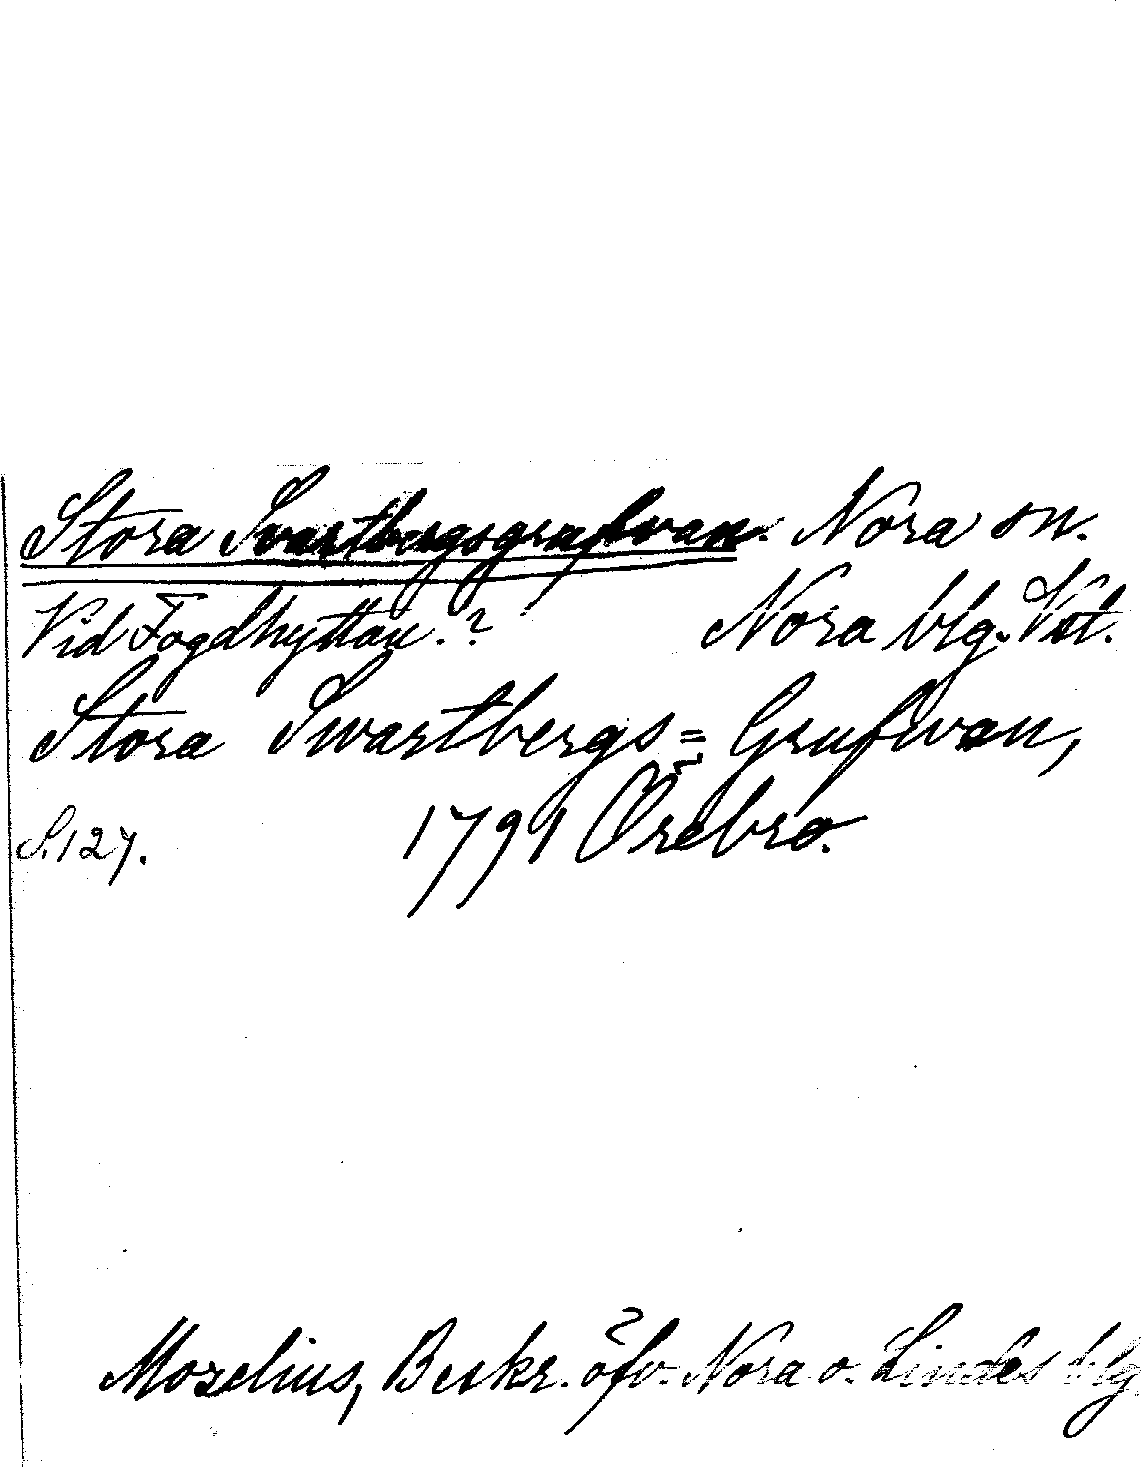 Stora Svartbergsgrufvan. Nora sn.
Vid Fogdhyttan.? Nora blg. Vst.
Stora Swartbergs=Grufwan,
S.127. 1791 Örebro.
Mozelius, Beskr. öfv. Nora o. Lindes blg.